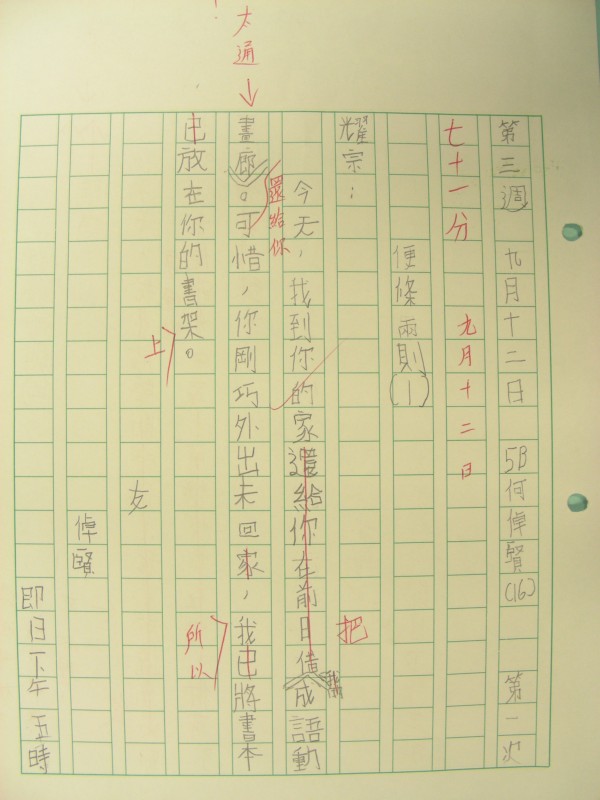 第三週 九月十二日 5B何倬賢(16) 第一次
七十一分 九月十二日
便條兩則(1)
耀宗：
今天，我到你的家還給你在前日借成語動
把
還給你
太通
畫廊。可惜，你剛巧外出未回家，我已將書本
所以
已放在你的書架。
上
友
倬賢
即日下午五時